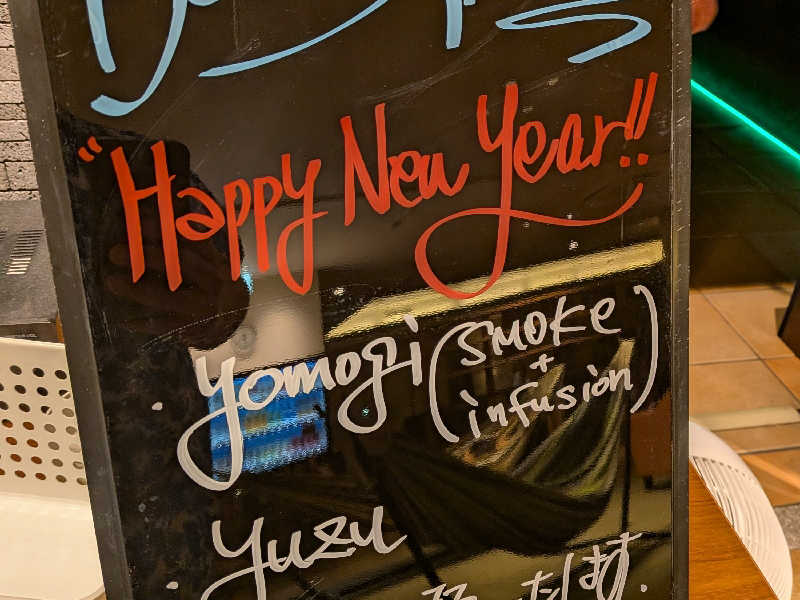 "Happy New Year!!
. yomogi (smoke + infusion)
. yuzu
たします.